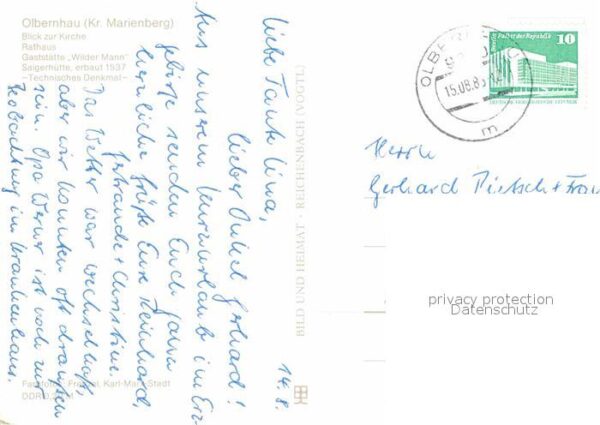 Olbernhau (Kr. Marienberg)
Blick zur Kirche
Rathaus
Gaststätte „Wilder Mann"
Saigerhütte, erbaut 1537
-Technisches Denkmal-
14.8.
Liebe Tante Lina,
lieber Onkel Gerhard!
Aus unserem Kurzurlaub im Erz-
gebirge senden Euch ganz
herzliche Grüße Eure Reinhard,
Gertraude + Christine.
Das Wetter war wechselhaft,
aber wir konnten oft draußen
sein. Opa Werner ist noch zur
Beobachtung im Krankenhaus.
BILD UND HEIMAT · REICHENBACH (VOGTL)
Karl-Marx-Stadt
DDR
Palast der Republik
10
15.08.8
m
Herrn
Gerhard Pietsch + Frau
privacy protection
Datenschutz